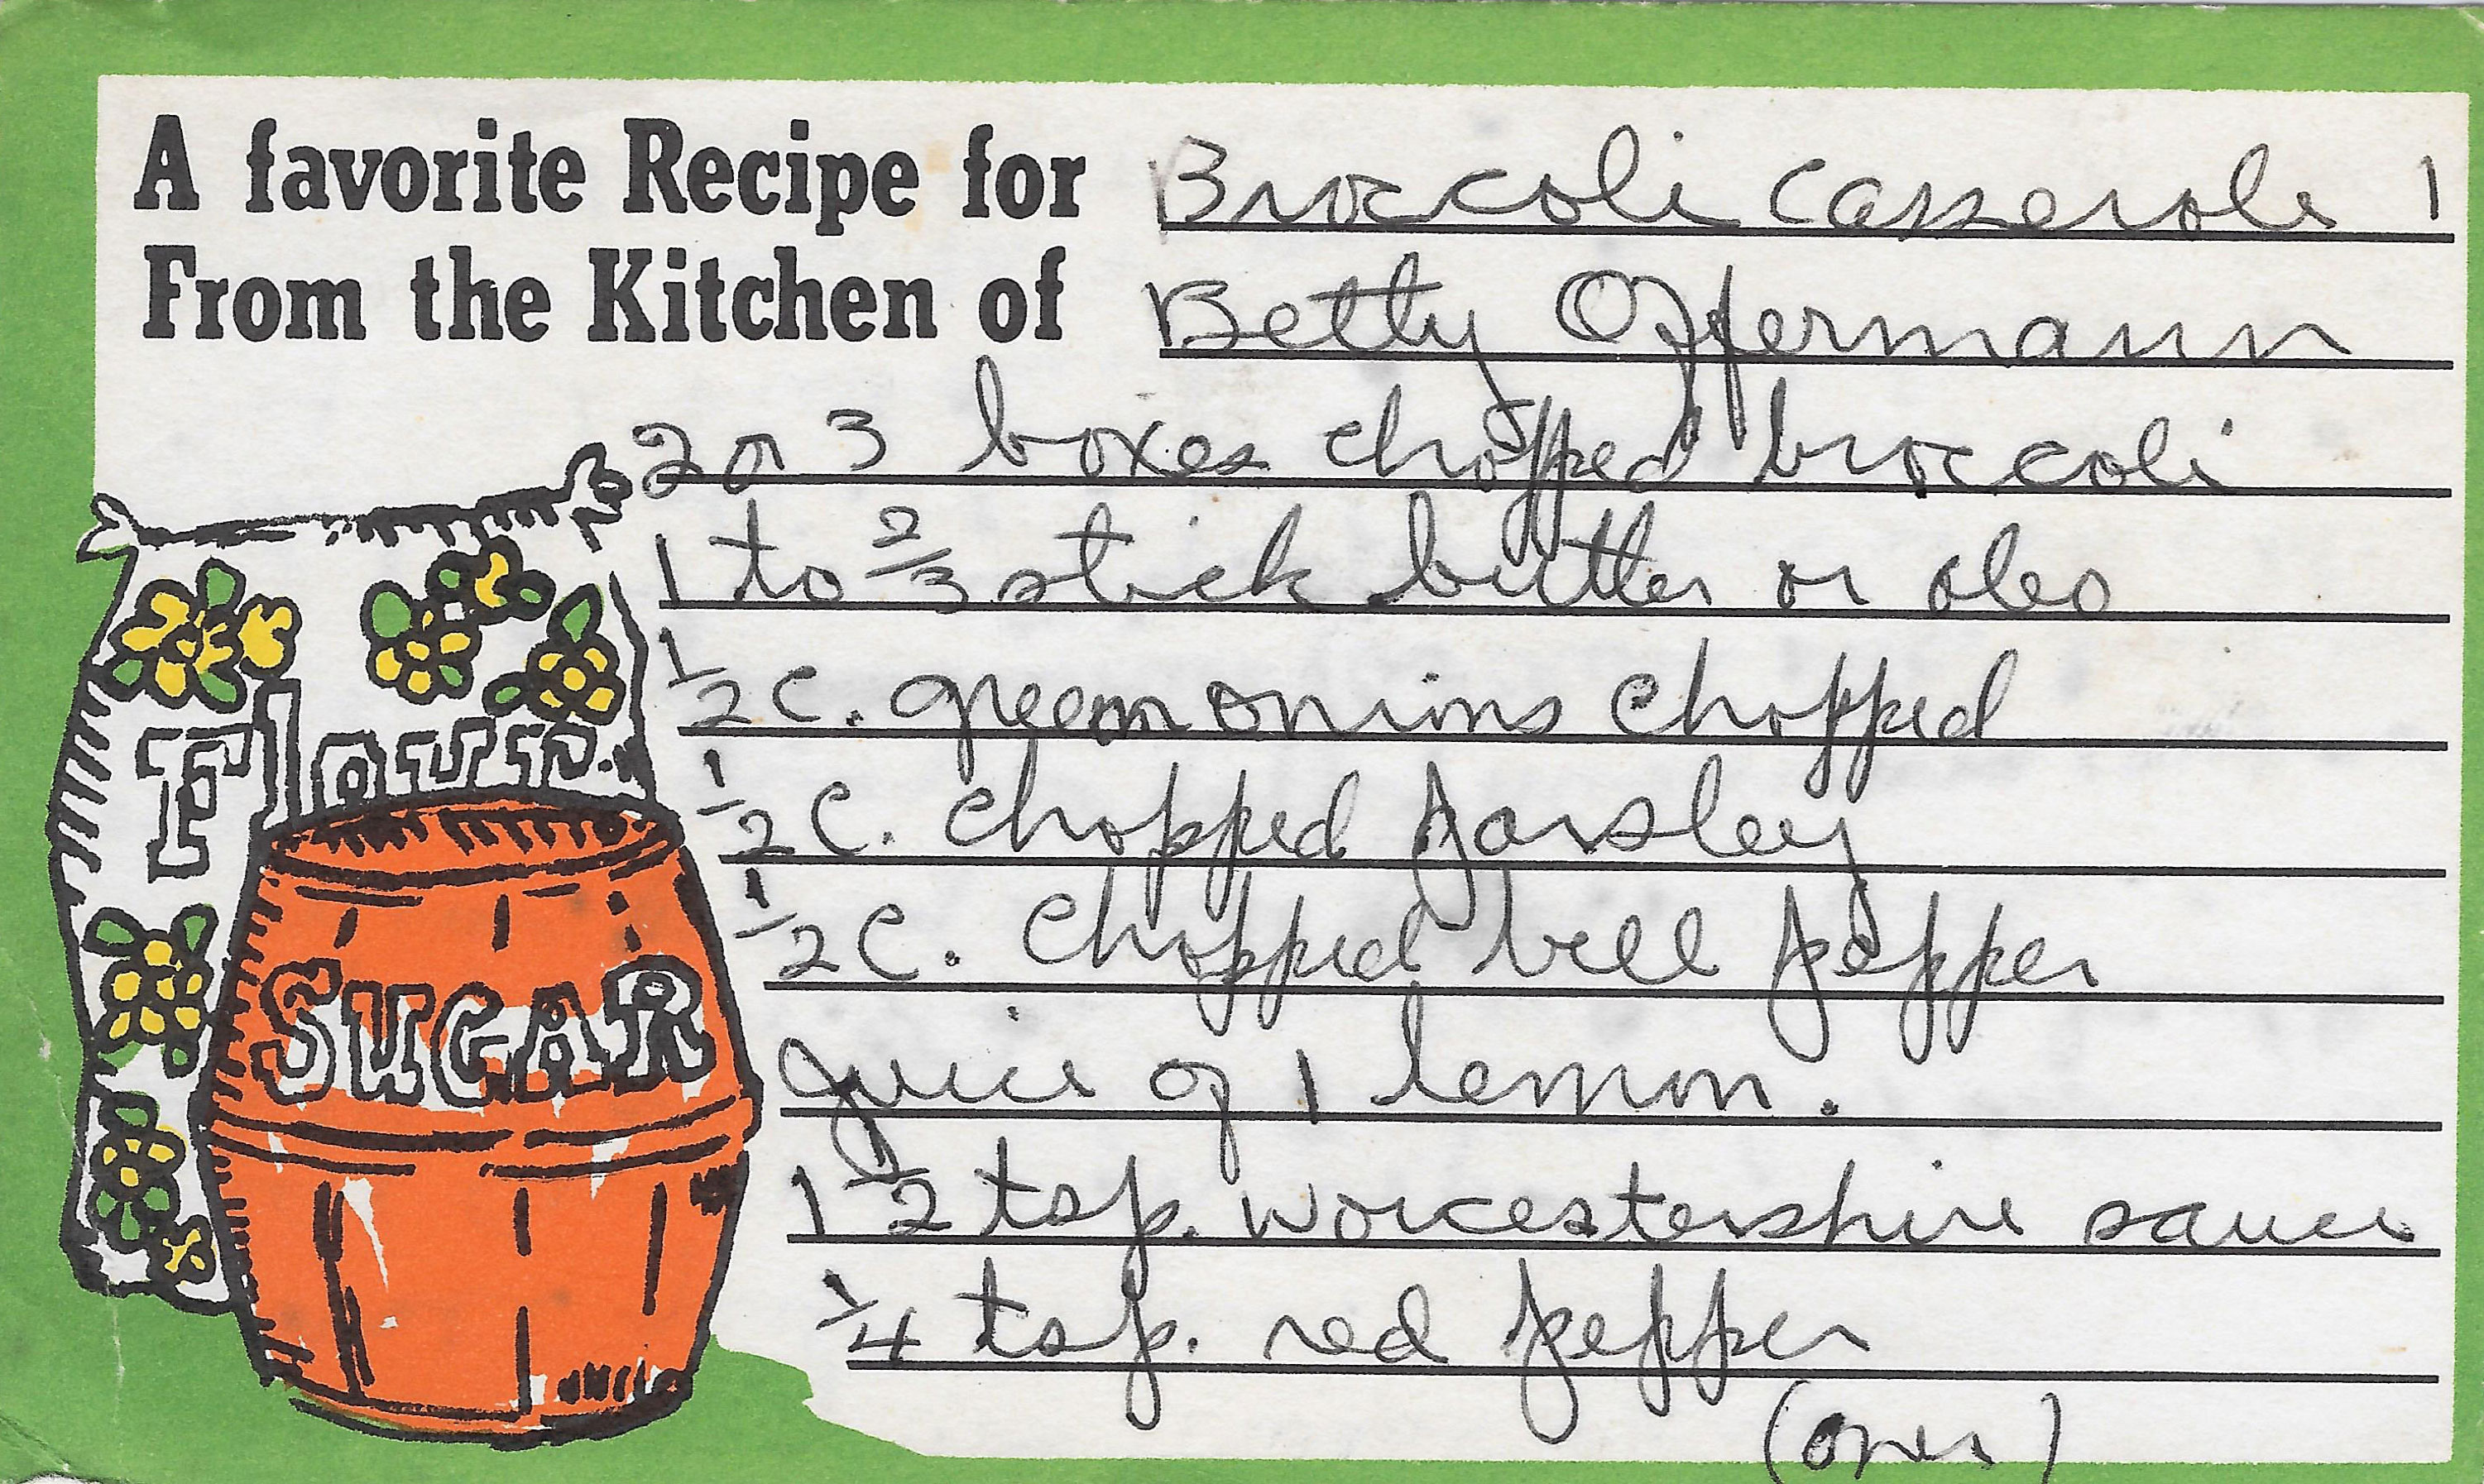 A favorite Recipe for Broccoli Casserole 1
From the Kitchen of Betty Offermann
2 or 3 boxes chopped broccoli
1 to 2/3 stick butter or oleo
1/2 c. green onions chopped
1/2 c. chopped parsley
1/2 c. chopped bell pepper
juice of 1 lemon.
1 1/2 tsp. worcestershire sauce
1/4 tsp. red pepper
(over)
Flour
SUGAR